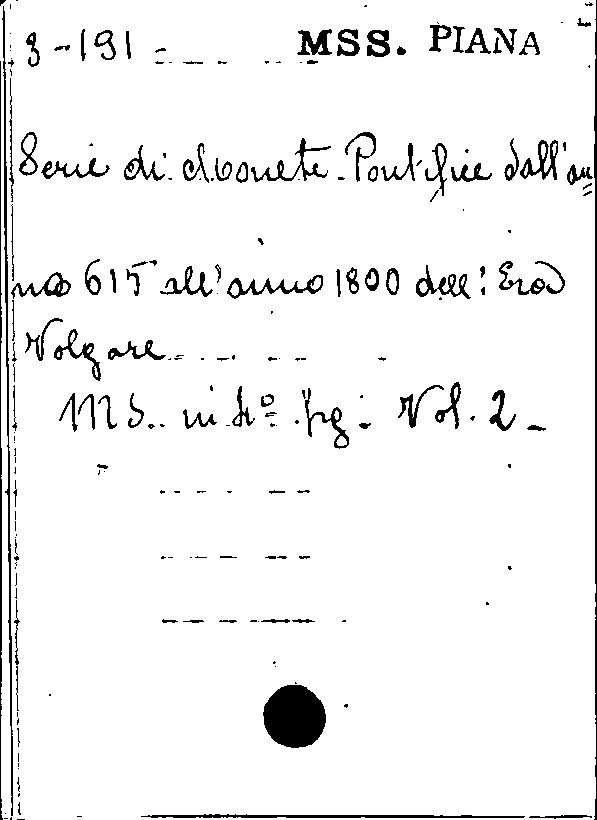 3-191 MSS. PIANA
Serie di Monete Pontifice dall'an=
no 615 all'anno 1800 dell'Era
Volgare
MS. in 4º. pg. Vol. 2